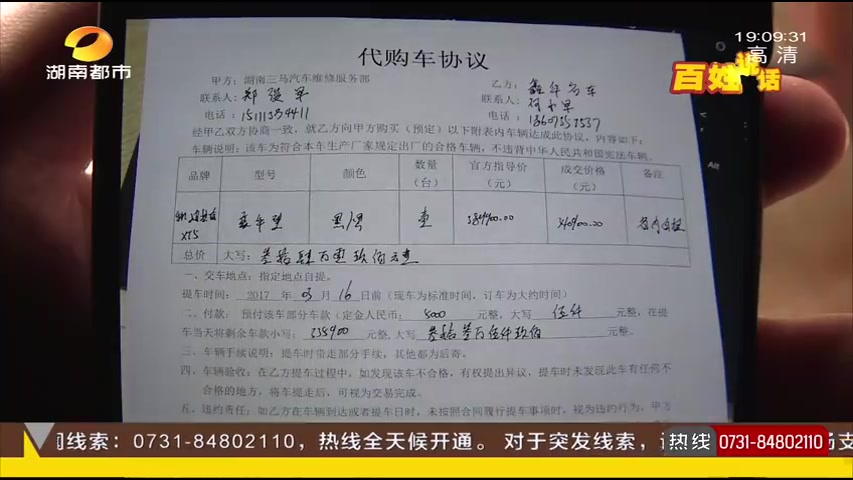 湖南都市
19:09:31
高清
百姓说话
代购车协议
甲方：湖南三马汽车维修服务部
乙方：鑫年名车
联系人：郑强军
联系人：
电话：15111334411
电话：
经甲乙双方协商一致，就乙方向甲方购买（预定）以下附表内车辆达成此协议，内容如下：
车辆说明：该车为符合本车生产厂家规定出厂的合格车辆，不违背中华人民共和国宪法车辆。
品牌 型号 颜色 数量（台） 官方指导价（元） 成交价格（元） 备注
XT5 豪华型 黑 壹 340900.00
总价 大写：叁拾肆万零玖佰元整
一、交车地点：指定地点自提。
提车时间：2017 年 03 月 16 日前（现车为标准时间，订车为大约时间）
二、付款：预付该车部分车款（定金人民币：5000 元整，大写 伍仟 元整，在提
车当天将剩余车款小写：335900 元整，大写 叁拾叁万伍仟玖佰 元整。
三、车辆手续说明：提车时带走部分手续，其他都为后寄。
四、车辆验收：在乙方提车过程中，如发现该车不合格，有权提出异议，提车时未发现此车有任何不
合格的地方，将车提走后，可视为交易完成。
五、违约责任：如乙方在车辆到达或者提车日时，未按照合同履行提车事项时，视为违约行为，甲方
Alt
闻线索：0731-84802110，热线全天候开通。 对于突发线索，
热线 0731-84802110